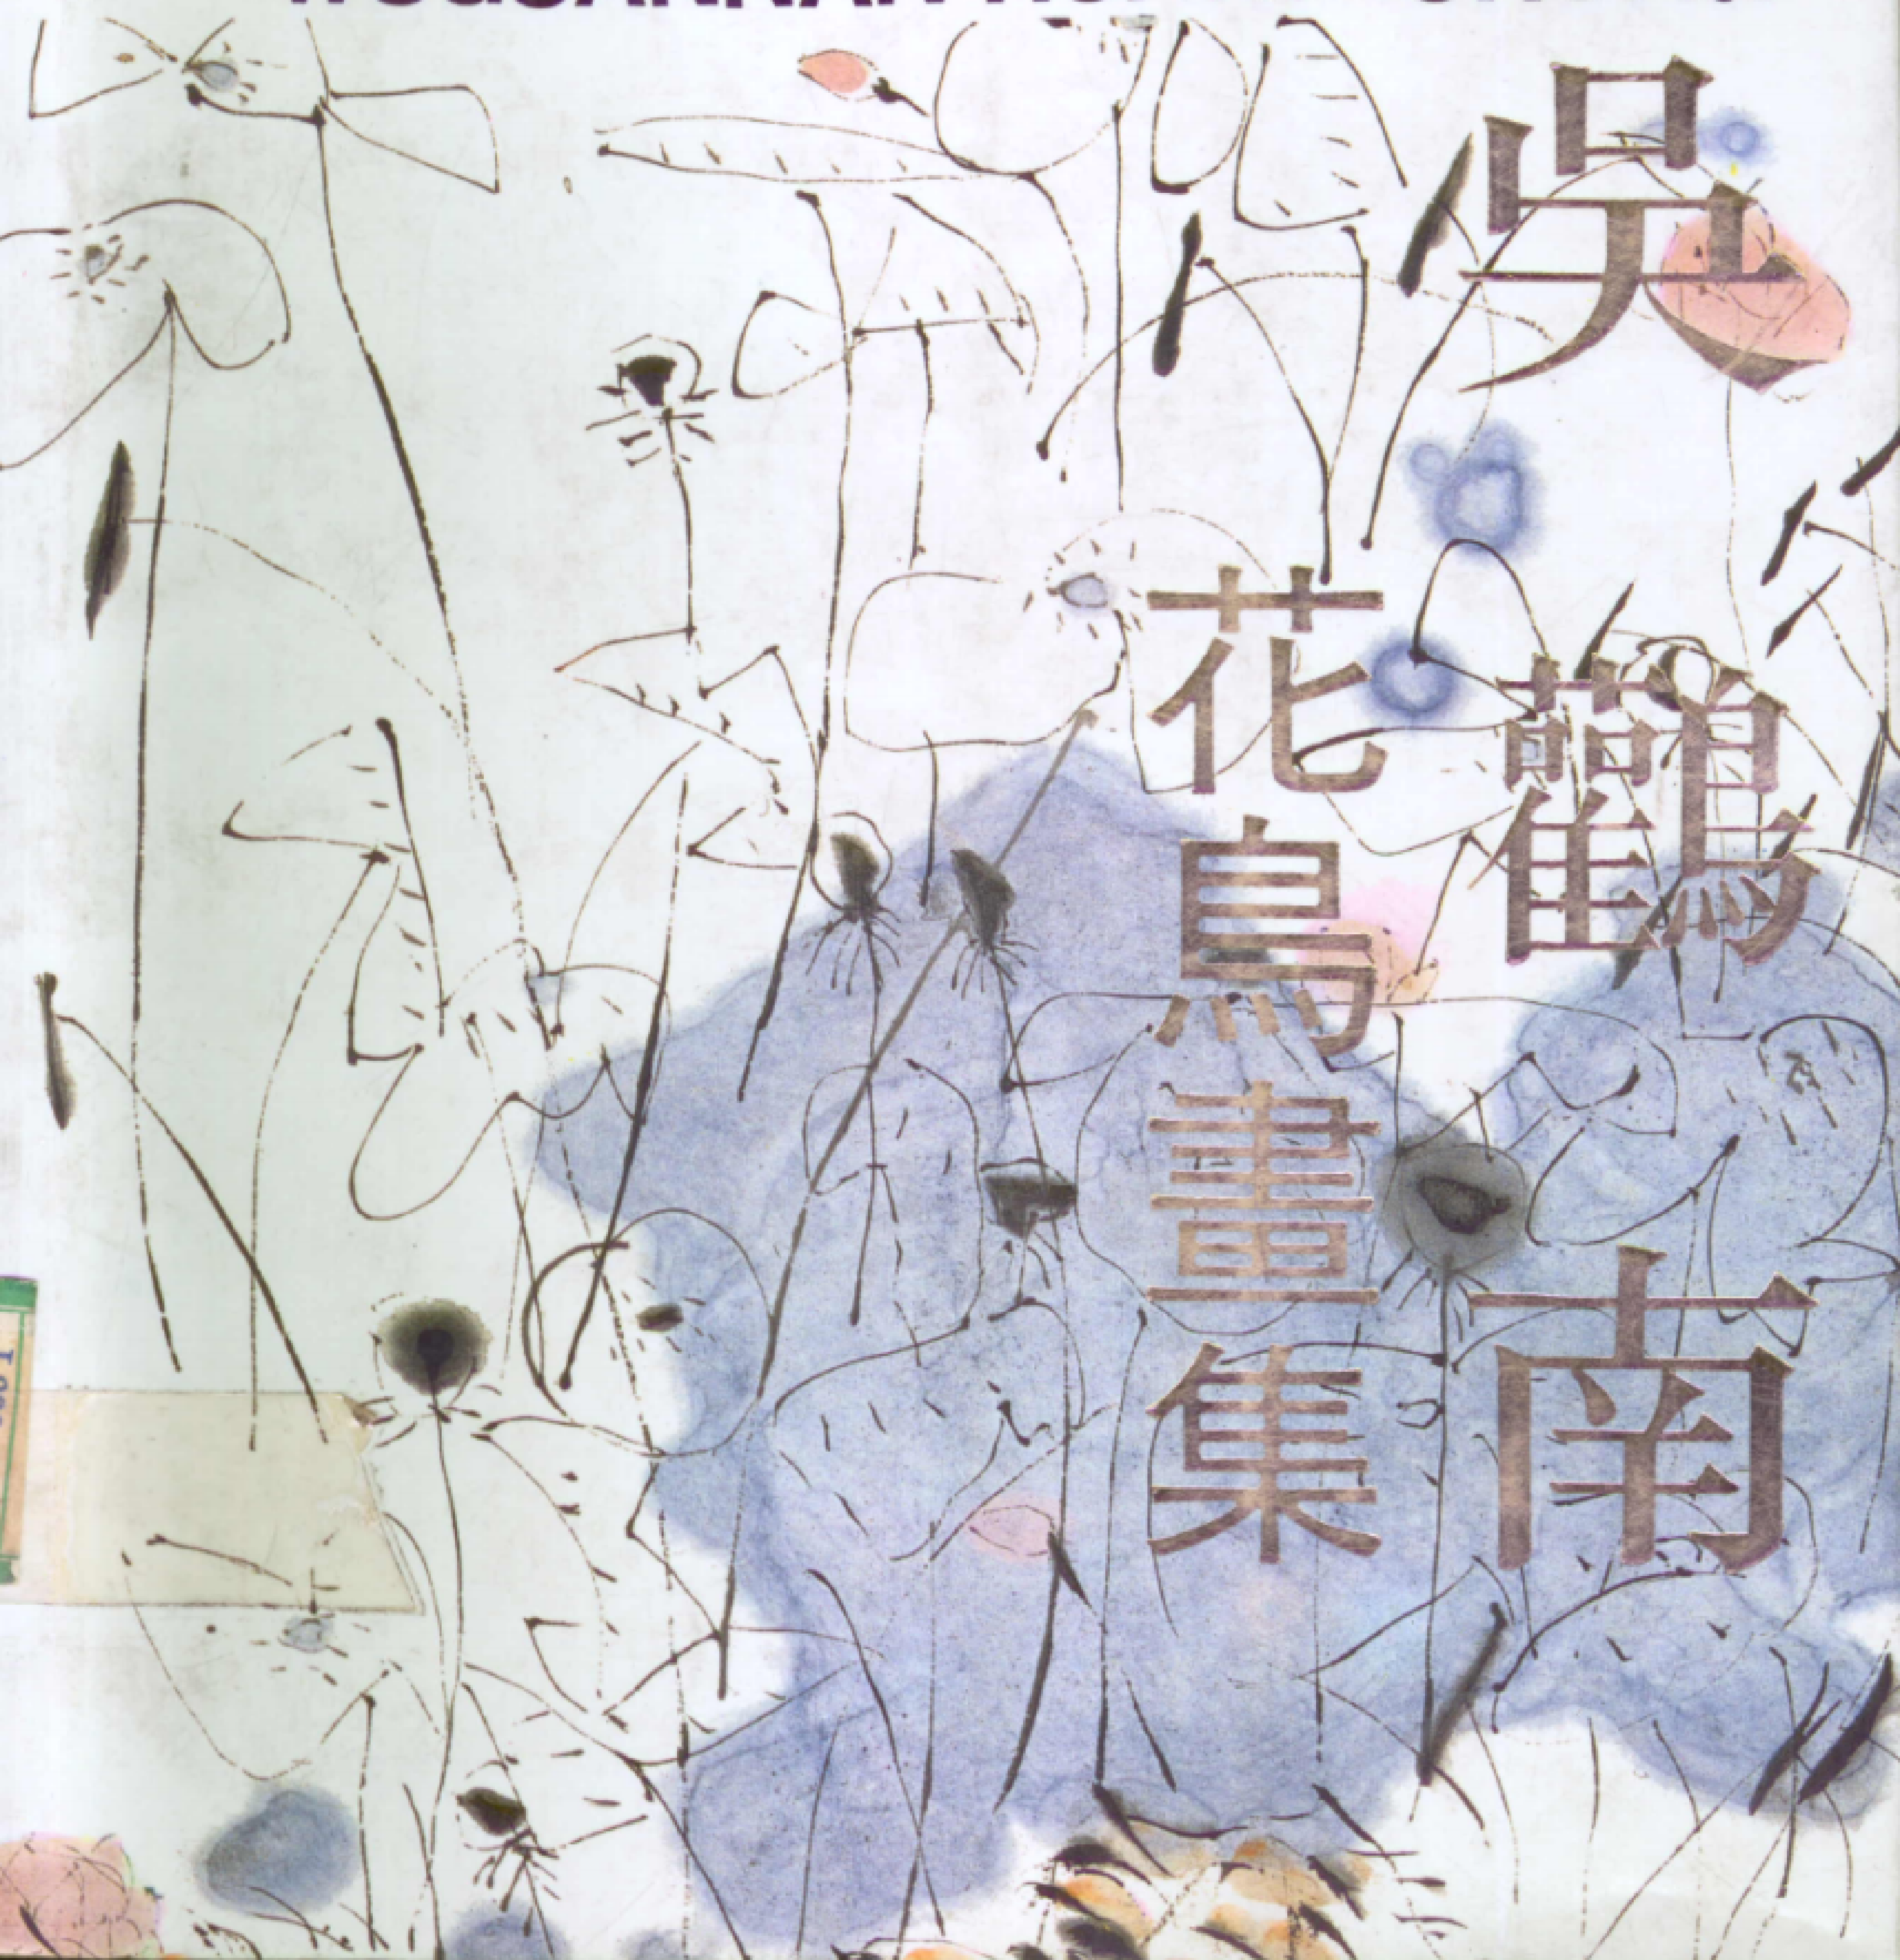 吳鸛南
花鳥畫集